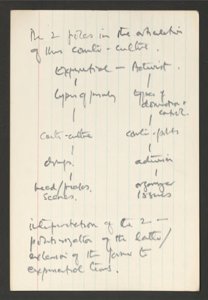 The 2 poles in the articulation
of this counter-culture.
Experiential — Activist.
types of
types of
domination &
control.
counter-culture
drugs.
activism
head/freaks,
scenes.
organizer
issues
interpretation of the 2 —
politicization of the latter/
extension of the former to
experiential terms.